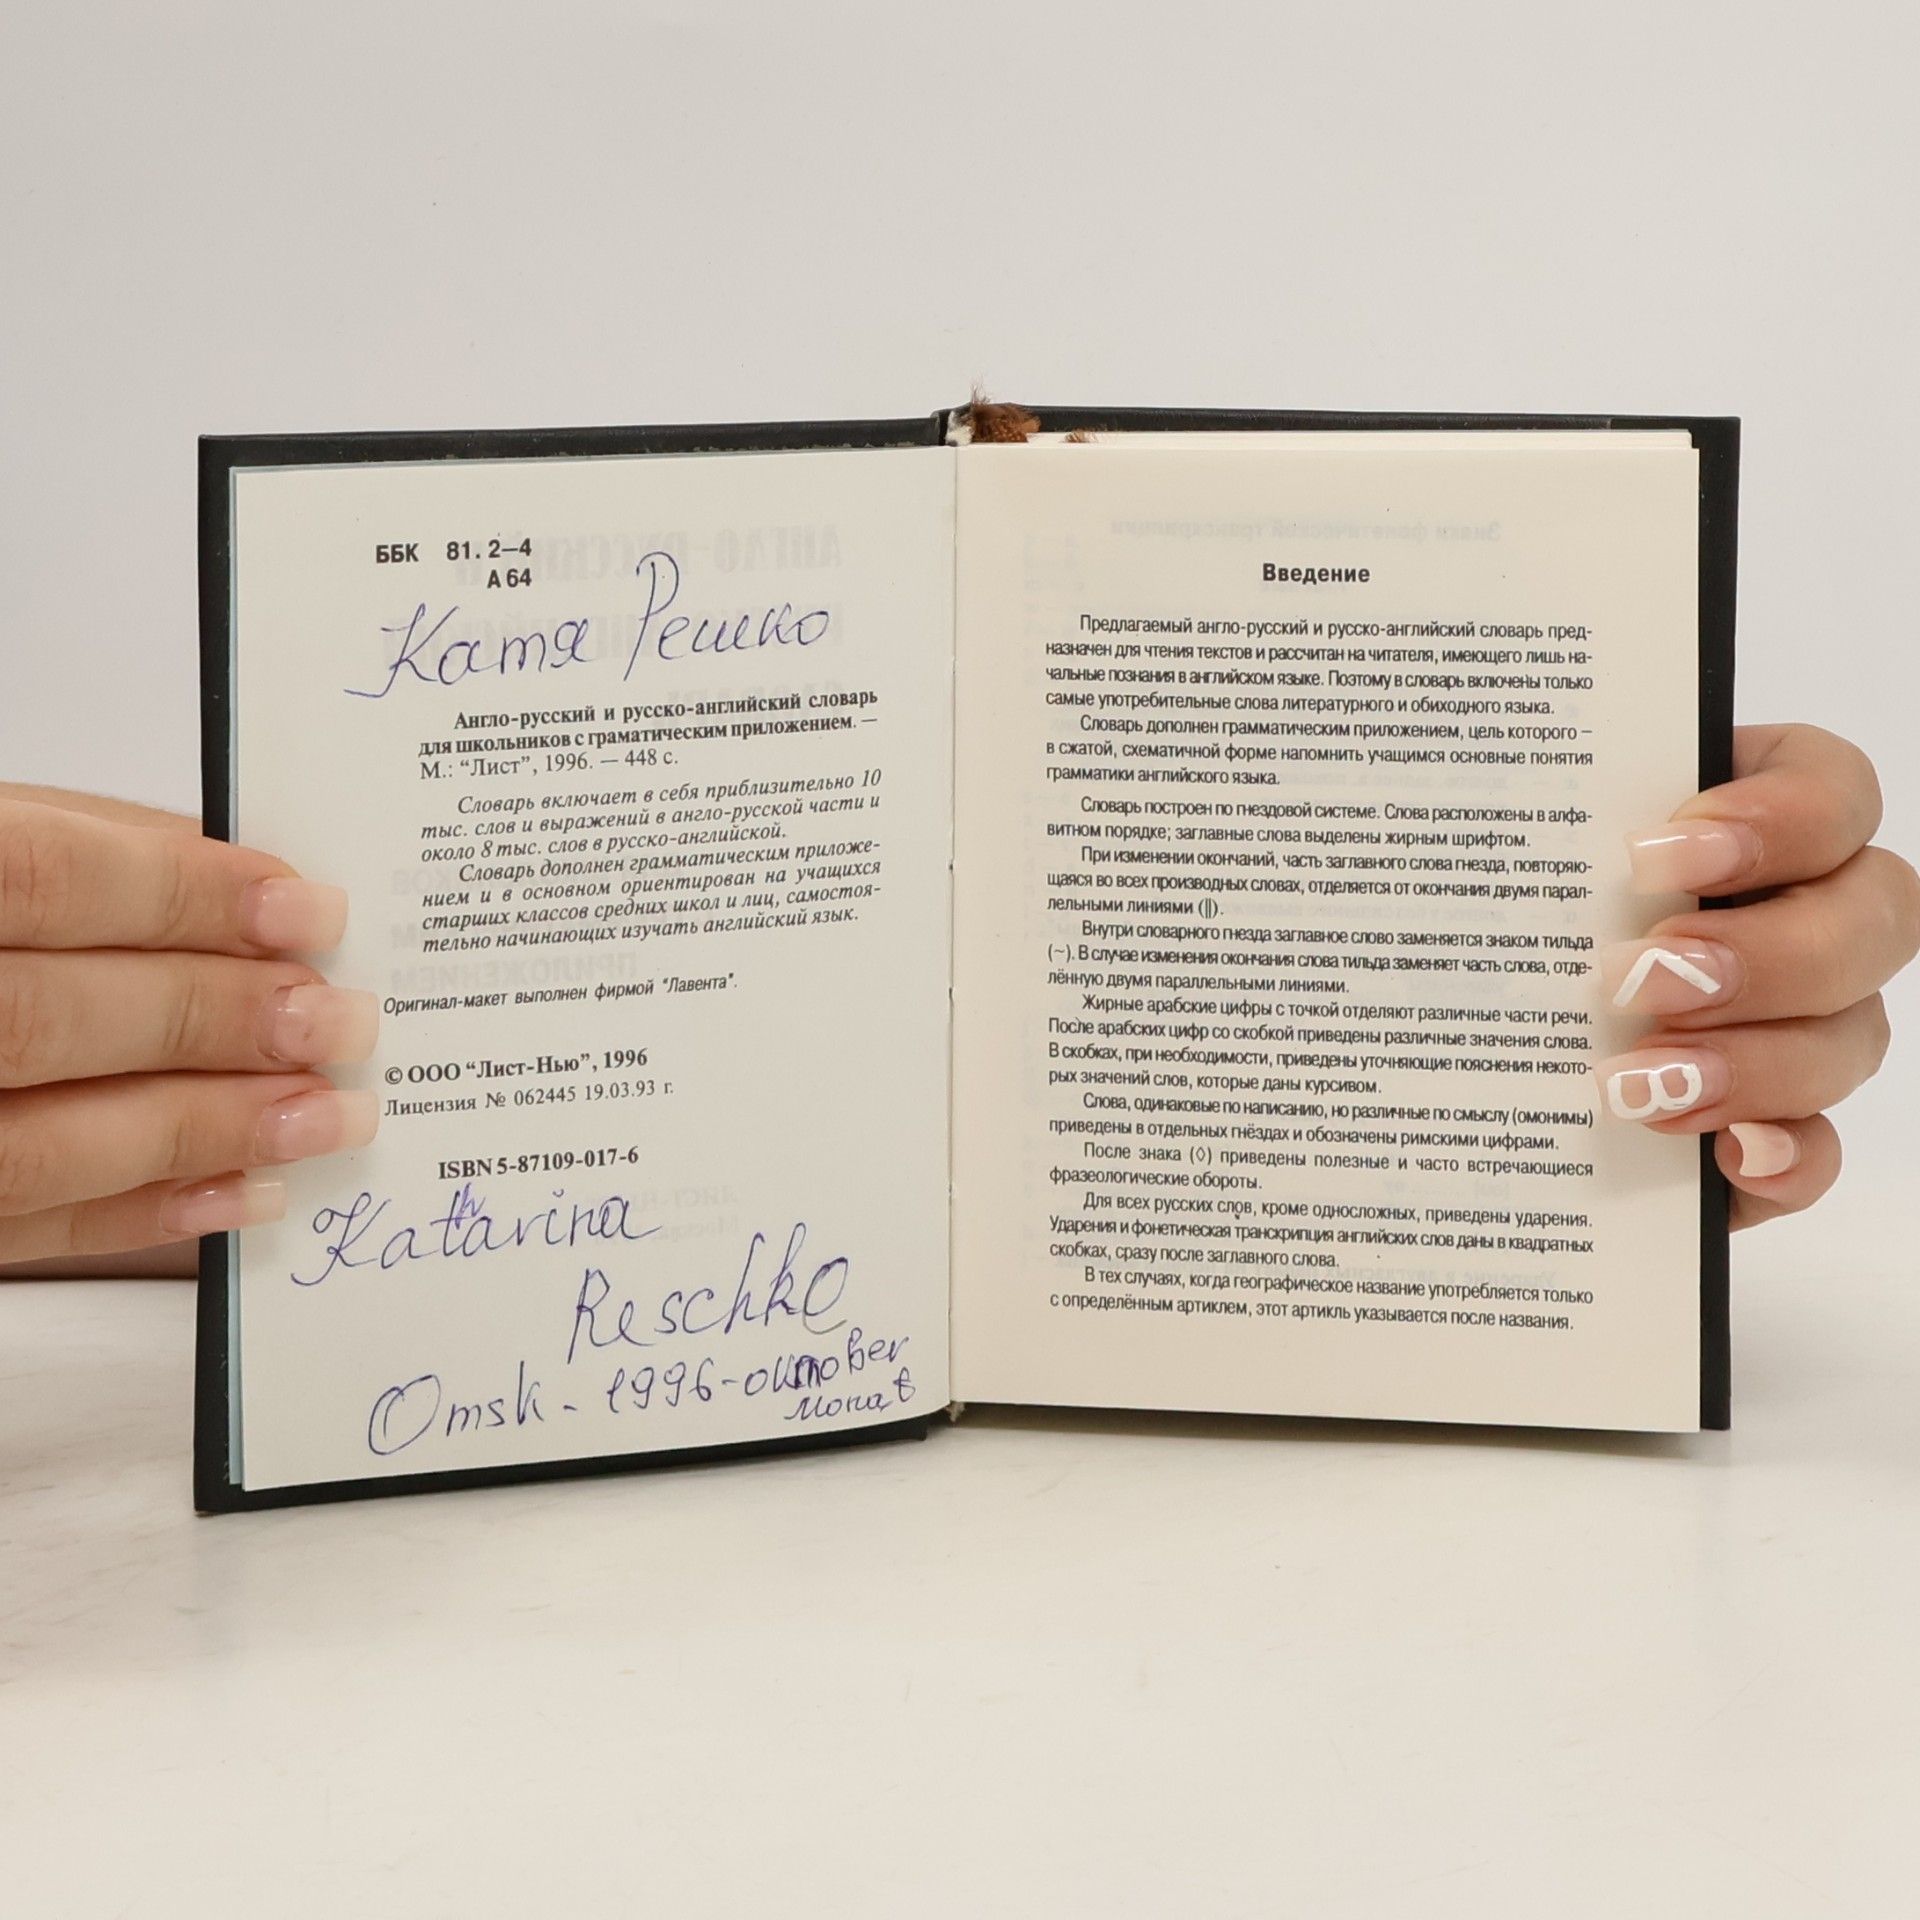 ББК 81. 2–4
А 64
Катя Решко
Англо-русский и русско-английский словарь
для школьников с граматическим приложением. —
М.: “Лист”, 1996. — 448 с.
Словарь включает в себя приблизительно 10
тыс. слов и выражений в англо-русской части и
около 8 тыс. слов в русско-английской.
Словарь дополнен грамматическим приложе-
нием и в основном ориентирован на учащихся
старших классов средних школ и лиц, самостоя-
тельно начинающих изучать английский язык.
Оригинал-макет выполнен фирмой "Лавента".
© ООО “Лист-Нью”, 1996
Лицензия № 062445 19.03.93 г.
ISBN 5-87109-017-6
Katharina
Reschko
Omsk - 1996 -
Введение
Предлагаемый англо-русский и русско-английский словарь пред-
назначен для чтения текстов и рассчитан на читателя, имеющего лишь на-
чальные познания в английском языке. Поэтому в словарь включены только
самые употребительные слова литературного и обиходного языка.
Словарь дополнен грамматическим приложением, цель которого –
в сжатой, схематичной форме напомнить учащимся основные понятия
грамматики английского языка.
Словарь построен по гнездовой системе. Слова расположены в алфа-
витном порядке; заглавные слова выделены жирным шрифтом.
При изменении окончаний, часть заглавного слова гнезда, повторяю-
щаяся во всех производных словах, отделяется от окончания двумя парал-
лельными линиями (||).
Внутри словарного гнезда заглавное слово заменяется знаком тильда
(~). В случае изменения окончания слова тильда заменяет часть слова, отде-
лённую двумя параллельными линиями.
Жирные арабские цифры с точкой отделяют различные части речи.
После арабских цифр со скобкой приведены различные значения слова.
В скобках, при необходимости, приведены уточняющие пояснения некото-
рых значений слов, которые даны курсивом.
Слова, одинаковые по написанию, но различные по смыслу (омонимы)
приведены в отдельных гнёздах и обозначены римскими цифрами.
После знака (◊) приведены полезные и часто встречающиеся
фразеологические обороты.
Для всех русских слов, кроме односложных, приведены ударения.
Ударения и фонетическая транскрипция английских слов даны в квадратных
скобках, сразу после заглавного слова.
В тех случаях, когда географическое название употребляется только
с определённым артиклем, этот артикль указывается после названия.